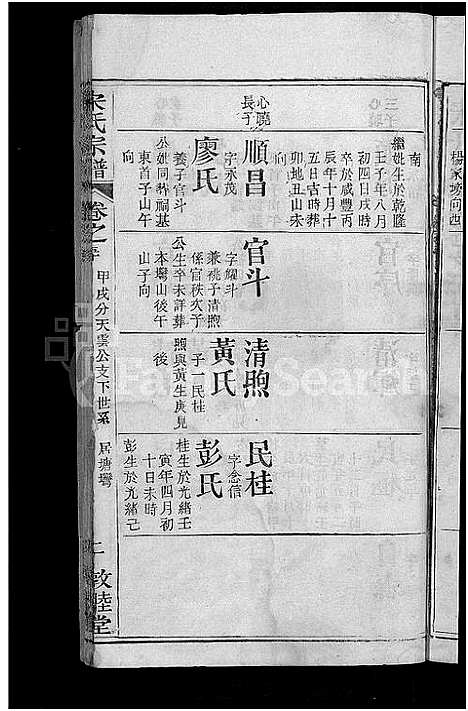 南
繼姓生於乾隆
壬子年八月
初四日戌時
卒於咸豐丙
辰年十月十
五日古時葬
卯地丑山未
向
心曉
長子
順昌
字永茂
廖氏
養子官斗
公姓同葬祠基
東首子山午
向
官斗
字耀斗
兼祧子清煦
係官秩次子
公生卒未詳葬
本塆山後午
山子向
清煦
黃氏
子一民桂
煦與黃生庚見
後
民桂
字念信
彭氏
桂生於光緒壬
寅年四月初
十日未時
彭生於光緒己
宋氏宗譜
卷之
甲戌分天雲公支下世系
居塘灣
二
敦睦堂
楊家坳向西